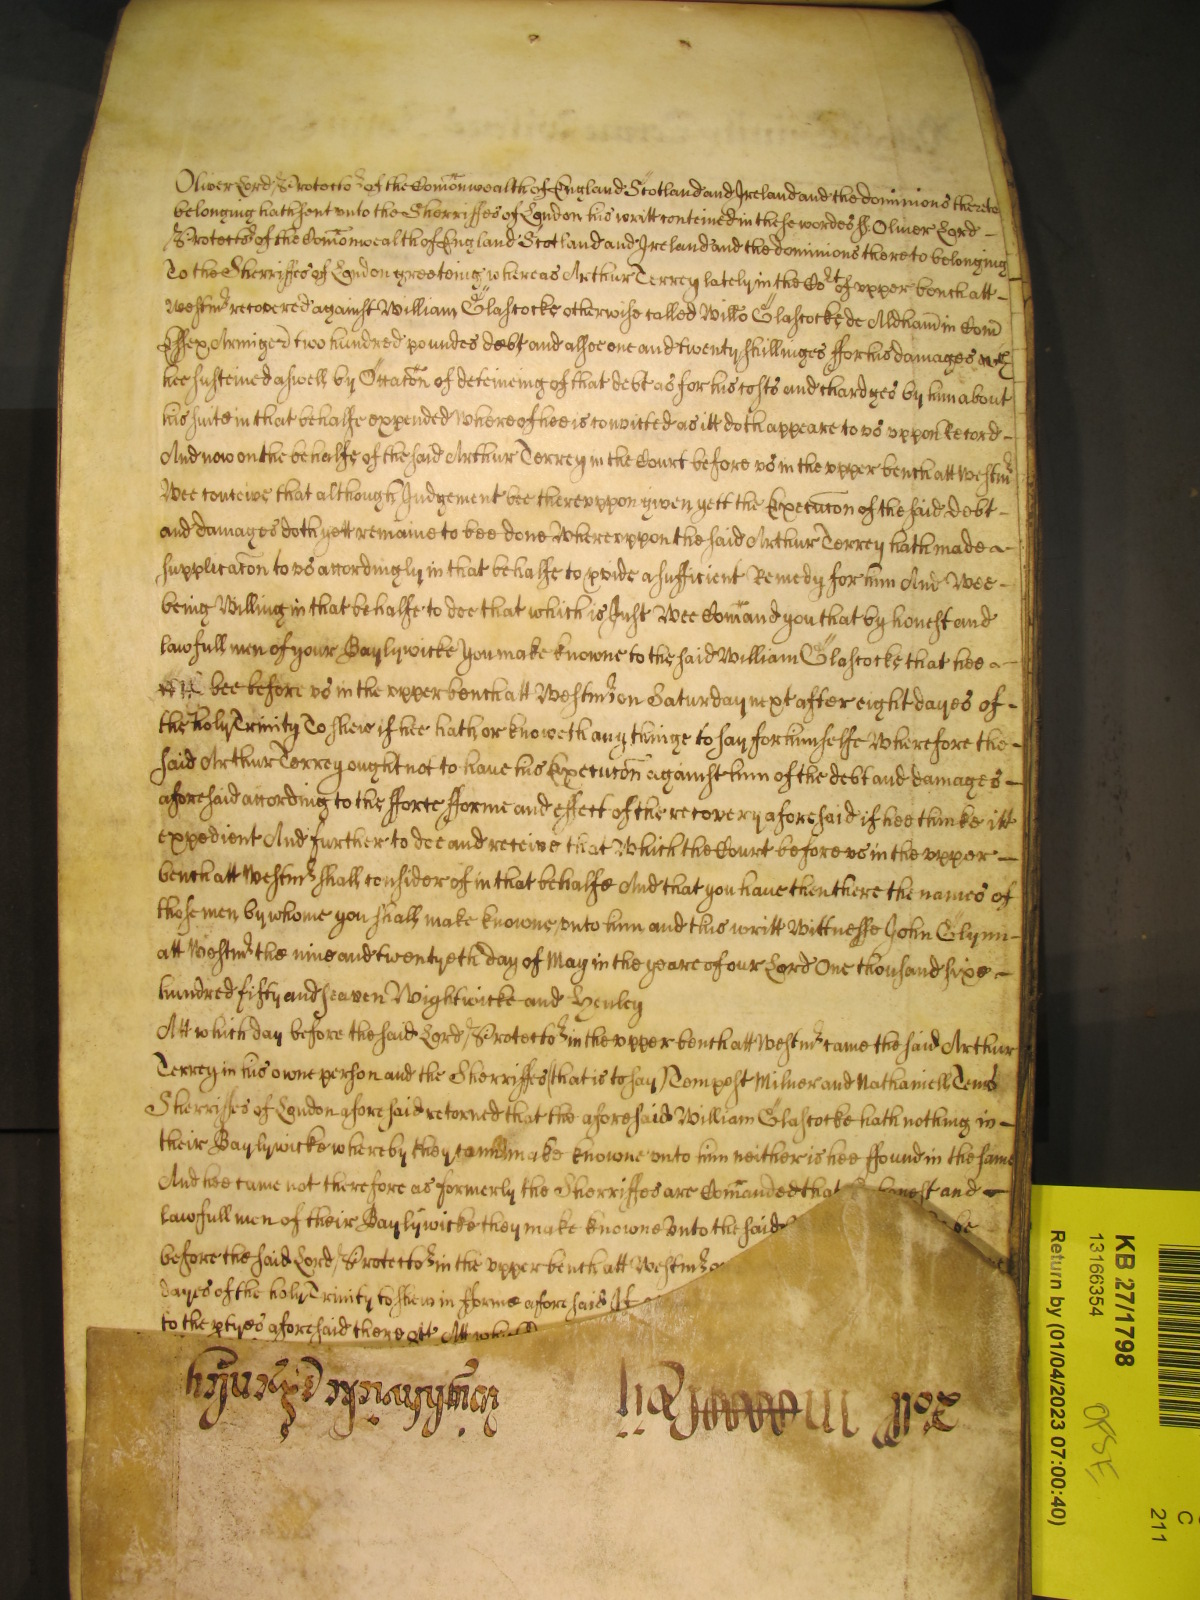 Oliver Lord Protector of the Comonwealth of England Scotland and Ireland and the dominions thereto
belonging hath sent unto the Sherriffes of London his writt conteined in these wordes ss. Oliver Lord
Protector of the Comonwealth of England Scotland and Ireland and the dominions thereto belonging
To the Sherriffes of London greeteing whereas Arthur Terrey lately in the Cort of upper bench att
Westmr recovered against William Glascocke otherwise called Willm Glascocke de Aldham in Com
Essex Armigerd two hundred poundes debt and alsoe one and twenty shillinges ffor his damages wch
hee susteined aswell by Occacon of deteineing of that debt as for his costs and chardges by him about
his suite in that behalfe expended Whereof hee is convicted as itt doth appeare to us uppon Record
And now on the behalfe of the said Arthur Terrey in the Court before us in the upper bench att Westmr
Wee conceive that although Judgement bee thereuppon given yett the Execucon of the said debt
and damages doth yett remaine to bee done Whereuppon the said Arthur Terrey hath made a
supplicacon to us accordingly in that behalfe to pvide a sufficient Remedy for him And Wee
being Willing in that behalfe to doe that which is Just Wee Comand you that by honest and
lawfull men of your Baylywicke you make knowne to the said William Glascocke that hee
bee before us in the upper bench att Westmr on Saturday next after eight dayes of
the holy Trinity To shew if hee hath or knoweth any thinge to say for himselfe Wherefore the
said Arthur Terrey ought not to have his Execucon against him of the debt and damages
aforesaid according to the fforce fforme and effect of the recovery aforesaid if hee thinke itt
expedient And further to doe and receive that Which the Court before us in the upper
bench att Westmr shall consider of in that behalfe And that you have then there the names of
those men by whome you shall make knowne unto him and this writt Wittnesse John Glynn
att Westmr the nine and twentyeth day of May in the yeare of our Lord One thousand sixe
hundred fifty and seaven Wightwicke and Henley
Att which day before the said Lord Protector in the upper bench att Westmr came the said Arthur
Terrey in his owne person and the Sherriffes (that is to say) Tempest Milner and Nathaniell Tems
Sherriffes of London aforesaid retorned that the aforesaid William Glascocke hath nothing in
their Baylywicke whereby they cann make knowne unto him neither is hee ffound in the same
And hee came not therefore as formerly the Sherriffes are Comanded that honest and
lawfull men of their Baylywicke they make knowne unto the said be
before the said Lord Protector in the upper bench att Westmr
dayes of the holy Trinity to shew in forme aforesaid
to the ptyes aforesaid there &c Att
Wightwicke
Roll
KB 27/1798
13166354
Return by (01/04/2023 07:00:40)
C
211